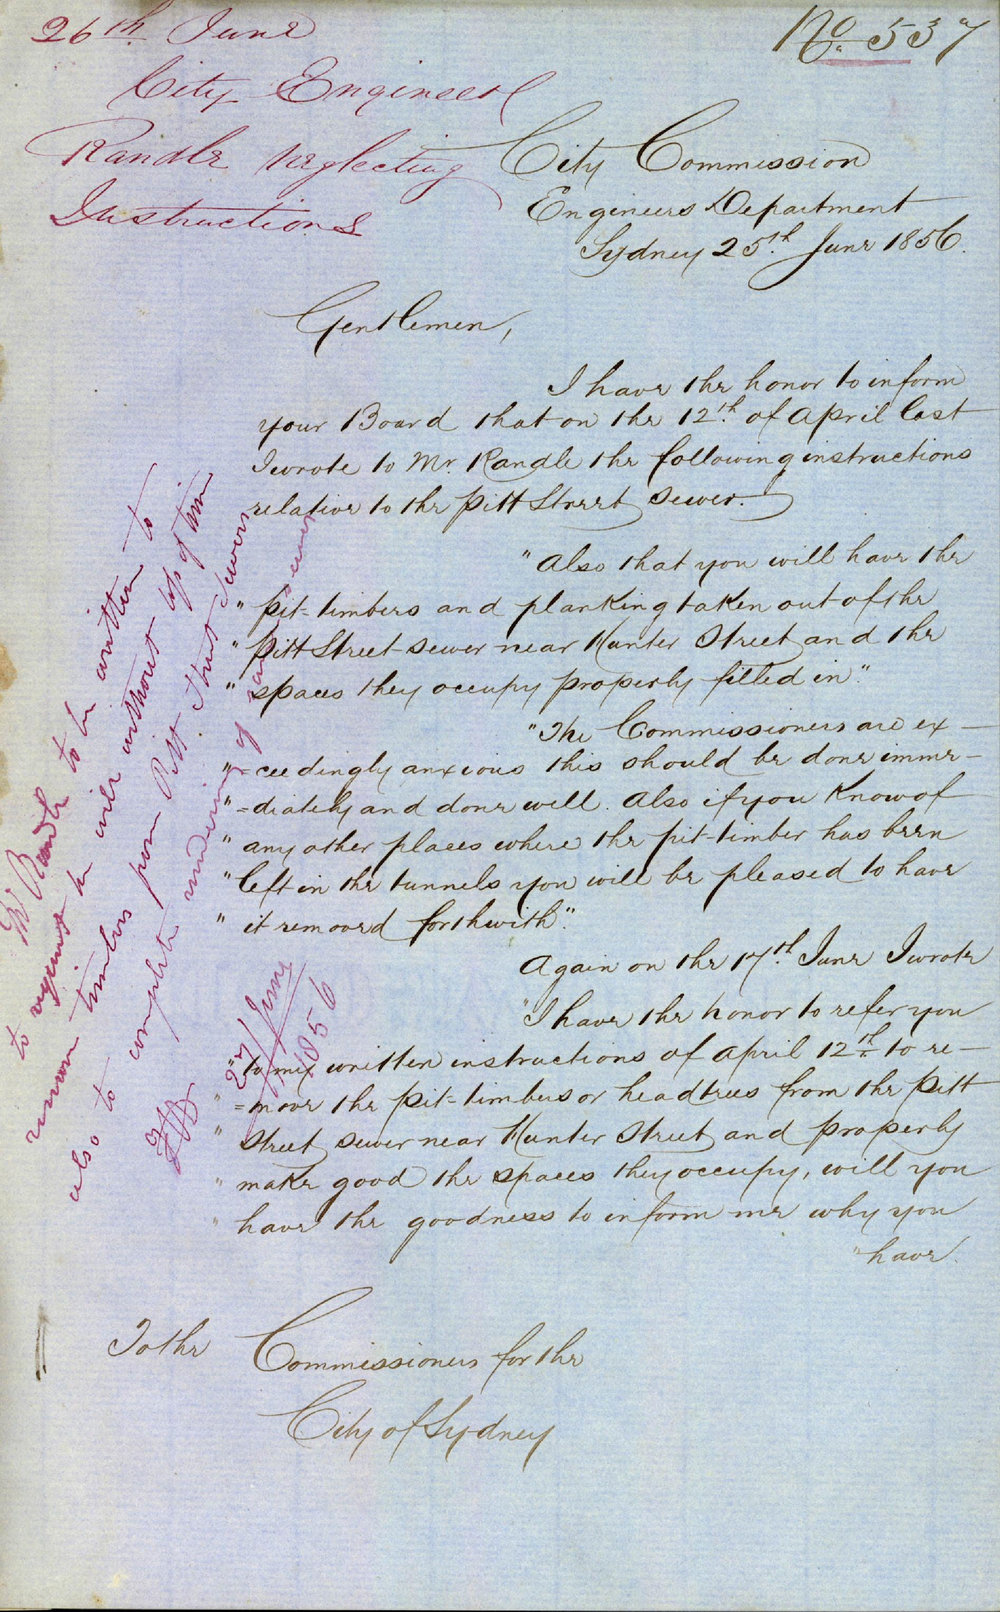 26th June
City Engineer
Randle neglecting
Instructions
No. 537
City Commission
Engineers Department
Sydney 25th. June 1856.
Gentlemen,
I have the honor to inform
your Board that on the 12th. of April last
I wrote to Mr. Randle the following instructions
relative to the Pitt Street sewer.
"Also that you will have the
" pit-timbers and planking taken out of the
" Pitt Street sewer near Hunter Street and the
" spaces they occupy properly filled in".
"The Commissioners are ex-
"=ceedingly anxious this should be done imme-
"=diately and done well. Also if you Know of
" any other places where the pit-timber has been
" left in the tunnels you will be pleased to have
" it removed forthwith".
Again on the 17th. June I wrote
"I have the honor to refer you
" to my written instructions of April 12th. to re-
"=move the pit-timbers or headtrees from the Pitt
" Street sewer near Hunter Street and properly
" make good the spaces they occupy, will you
" have the goodness to inform me why you
"have.
To the Commissioners for the
City of Sydney
Mr Randle to be written to
to
remove timbers from Pitt Street Sewers
also to complete of same sewer
27/June
1856